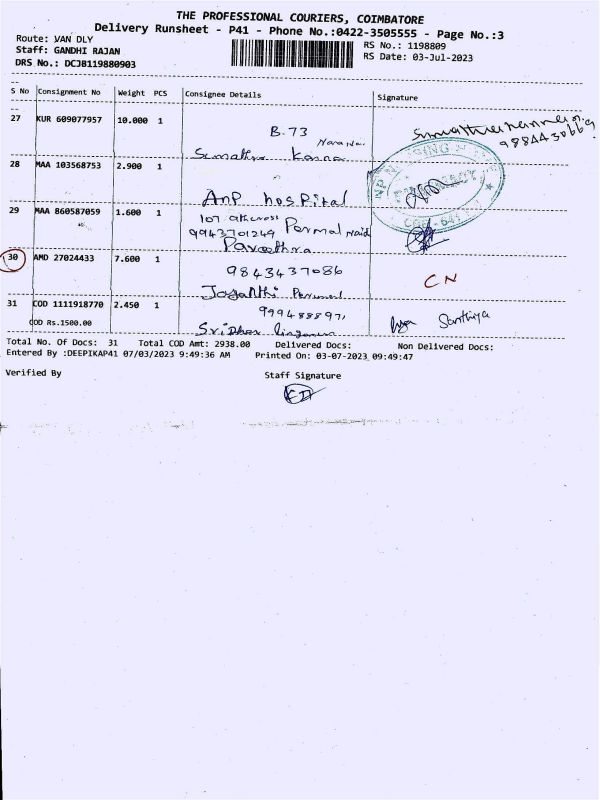 THE PROFESSIONAL COURIERS, COIMBATORE
Delivery Runsheet - P41 - Phone No.:0422-3505555 - Page No.:3
Route: VAN DLY
RS No.: 1198809
Staff: GANDHI RAJAN
RS Date: 03-Jul-2023
DRS No.: DCJB119880903
S No Consignment No Weight PCS Consignee Details Signature
27 KUR 609077957 10.000 1
B.73
Sumathi Kanna
9884430669
28 MAA 103568753 2.900 1
ANP hospital
29 MAA 860587059 1.600 1
107
9943701249 Permal Naid
Pavethra
30 AMD 27024433 7.600 1
9843437086
CN
Jayanthi Perumal
31 COD 1111918770 2.450 1
9994888971
Santhiya
COD Rs.1500.00
Sridhar
Total No. Of Docs: 31 Total COD Amt: 2938.00 Delivered Docs: Non Delivered Docs:
Entered By :DEEPIKAP41 07/03/2023 9:49:36 AM Printed On: 03-07-2023 09:49:47
Verified By Staff Signature